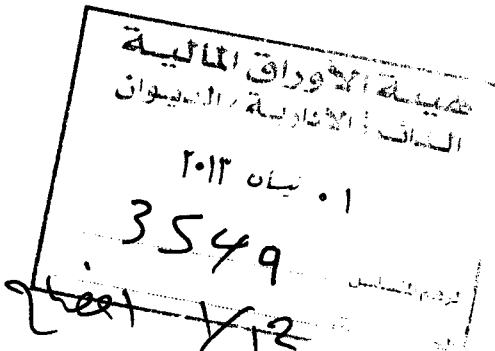 هيئة الأوراق المالية
الدائرة الإدارية / الديوان
٠١ نيسان ٢٠١٣
3549
الرقم المتسلسل
افصاح